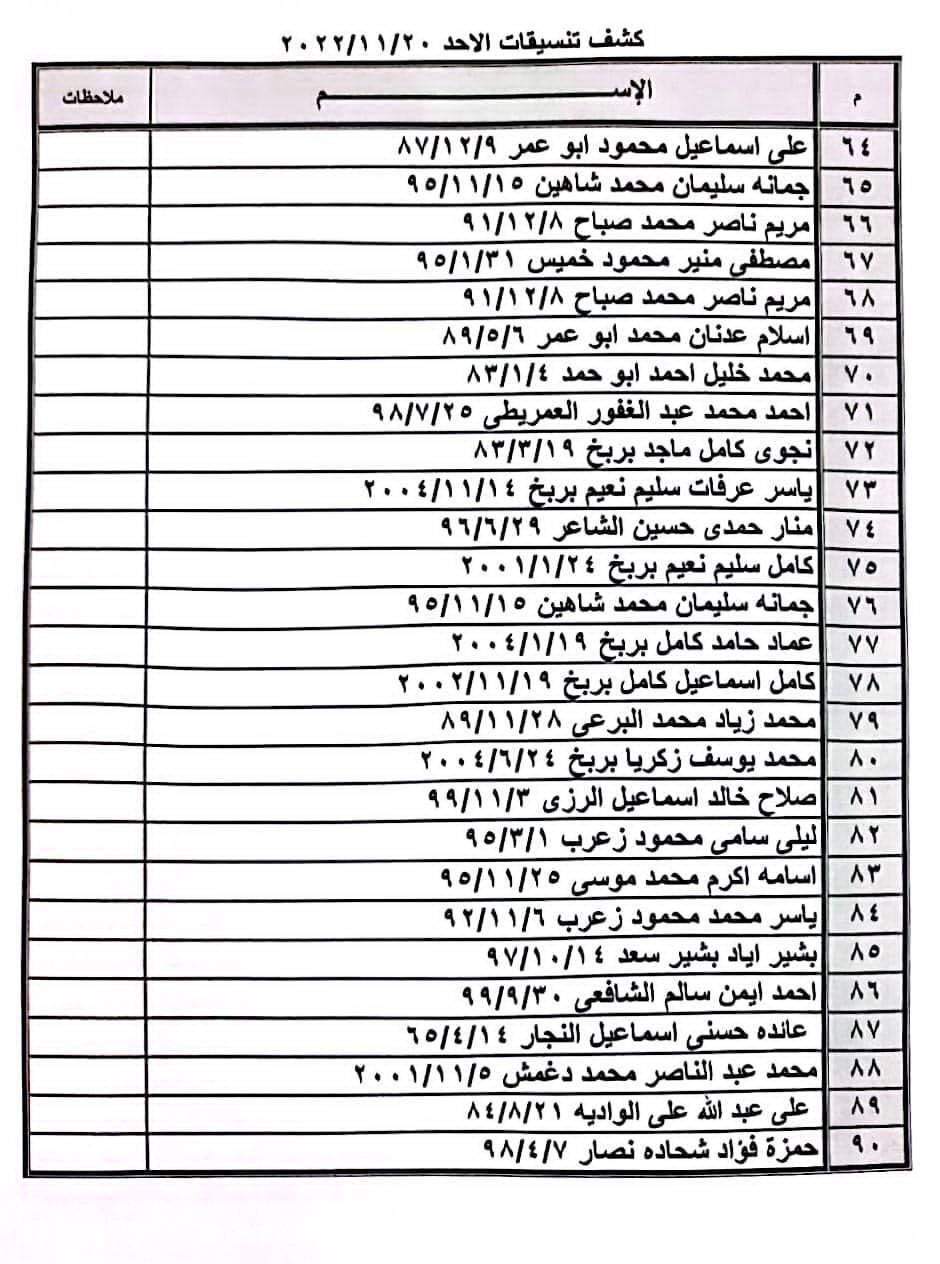 كشف تنسيقات الاحد ٢٠٢٢/١١/٢٠
م الإســـــــم ملاحظات
٦٤ على اسماعيل محمود ابو عمر ٨٧/١٢/٩
٦٥ جمانه سليمان محمد شاهين ٩٥/١١/١٥
٦٦ مريم ناصر محمد صباح ٩١/١٢/٨
٦٧ مصطفى منير محمود خميس ٩٥/١/٣١
٦٨ مريم ناصر محمد صباح ٩١/١٢/٨
٦٩ اسلام عدنان محمد ابو عمر ٨٩/٥/٦
٧٠ محمد خليل احمد ابو حمد ٨٣/١/٤
٧١ احمد محمد عبد الغفور العمريطى ٩٨/٧/٢٥
٧٢ نجوى كامل ماجد بربخ ٨٣/٣/١٩
٧٣ ياسر عرفات سليم نعيم بربخ ٢٠٠٤/١١/١٤
٧٤ منار حمدى حسين الشاعر ٩٦/٦/٢٩
٧٥ كامل سليم نعيم بربخ ٢٠٠١/١/٢٤
٧٦ جمانه سليمان محمد شاهين ٩٥/١١/١٥
٧٧ عماد حامد كامل بربخ ٢٠٠٤/١/١٩
٧٨ كامل اسماعيل كامل بربخ ٢٠٠٢/١١/١٩
٧٩ محمد زياد محمد البرعى ٨٩/١١/٢٨
٨٠ محمد يوسف زكريا بربخ ٢٠٠٤/٦/٢٤
٨١ صلاح خالد اسماعيل الرزى ٩٩/١١/٣
٨٢ ليلى سامى محمود زعرب ٩٥/٣/١
٨٣ اسامه اكرم محمد موسى ٩٥/١١/٢٥
٨٤ ياسر محمد محمود زعرب ٩٢/١١/٦
٨٥ بشير اياد بشير سعد ٩٧/١٠/١٤
٨٦ احمد ايمن سالم الشافعى ٩٩/٩/٣٠
٨٧ عائده حسني اسماعيل النجار ٦٥/٤/١٤
٨٨ محمد عبد الناصر محمد دغمش ٢٠٠١/١١/٥
٨٩ على عبد الله على الواديه ٨٤/٨/٢١
٩٠ حمزة فؤاد شحاده نصار ٩٨/٤/٧